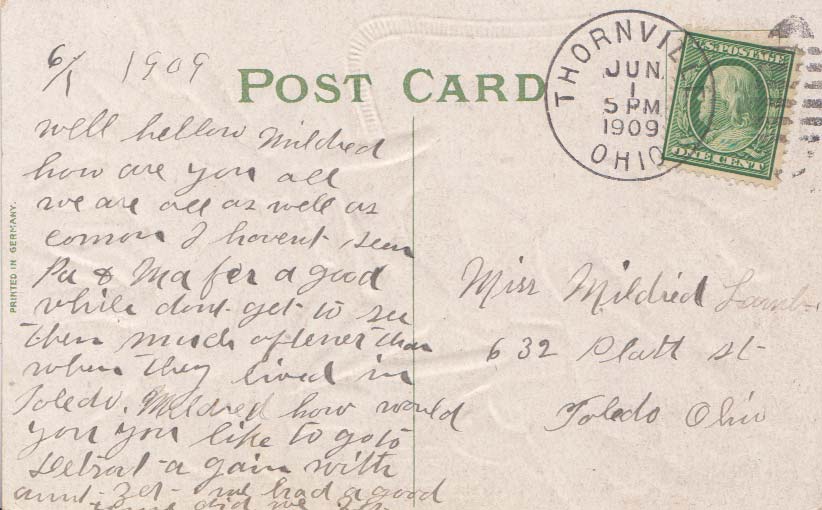 6/1 1909
POST CARD
THORNVILLE
JUN
1
5 PM
1909
OHIO
U.S. POSTAGE
ONE CENT
PRINTED IN GERMANY.
well hellow Mildred
how are you all
we are all as well as
comon I havent seen
Pa & Ma fer a good
while dont get to see
them much oftener than
when they lived in
Toledo. Mildred how would
you you like to go to
Detroit a gain with
aunt we had a good
did we
Miss Mildred Lamb
632 Platt St
Toledo Ohio